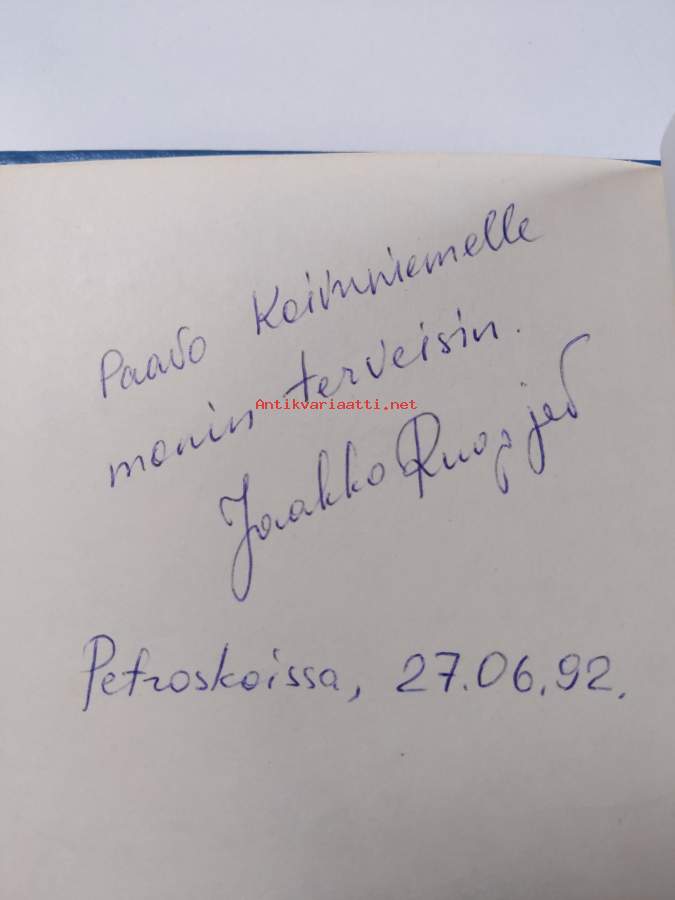 Paavo Koivuniemelle
monin terveisin.
Antikvariaatti.net
Jaakko Rugojev
Petroskoissa, 27.06.92.